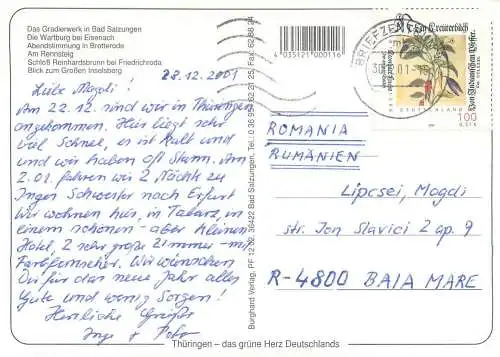 Das Gradierwerk in Bad Salzungen
Die Wartburg bei Eisenach
Abendstimmung in Brotterode
Am Rennsteig
Schloß Reinhardsbrunn bei Friedrichroda
Blick zum Großen Inselsberg
28.12.2001
Liebe Magdi!
Am 22.12. sind wir in Thüringen
angekommen. Hier liegt sehr
viel Schnee, es ist kalt und
und wir haben oft Sturm. Am
2.01. fahren wir 2 Nächte zu
Inges Schwester nach Erfurt
Wir wohnen hier, in Tabarz, in
einem schönen - aber kleinen
Hotel, 2 sehr große Zimmer - mit
Farbfernseher. Wir wünschen
Dir für das neue Jahr alles
Gute und wenig Sorgen!
Herzliche Grüße
Inge + Peter
4 035121 000116
Burghard Verlag, PF 12 02, 36422 Bad Salzungen, Tel.: 0 36 95/ 62 21 25, Fax: 62 88 24
BRIEFZEN
DEUTSCHLAND
100
0,51 €
ROMANIA
RUMÄNIEN
Lipcsei, Magdi
str. Jon Slavici 2 ap. 9
R-4800 BAIA MARE
Thüringen – das grüne Herz Deutschlands